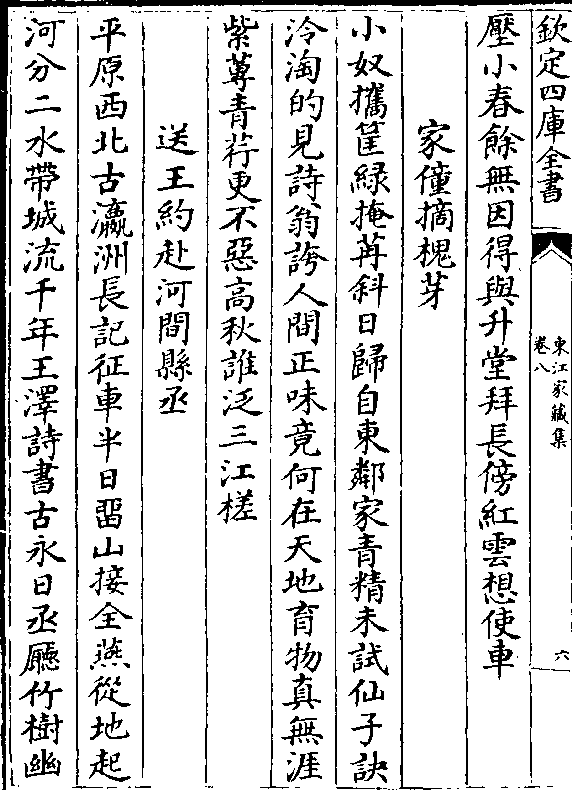 欽定四庫全書
東江家藏集
卷八
六
壓小春餘無因得與升堂拜長傍紅雲想使車
家僮摘槐芽
小奴攜筐緑掩苒斜日歸自東鄰家青精未試仙子訣
泠淘的見詩翁誇人間正味竟何在天地育物真無涯
紫蓴青荇更不惡高秋誰泛三江槎
送王約赴河間縣丞
平原西北古瀛洲長記征車半日畱山接全燕從地起
河分二水帶城流千年王澤詩書古永日丞廳竹樹幽